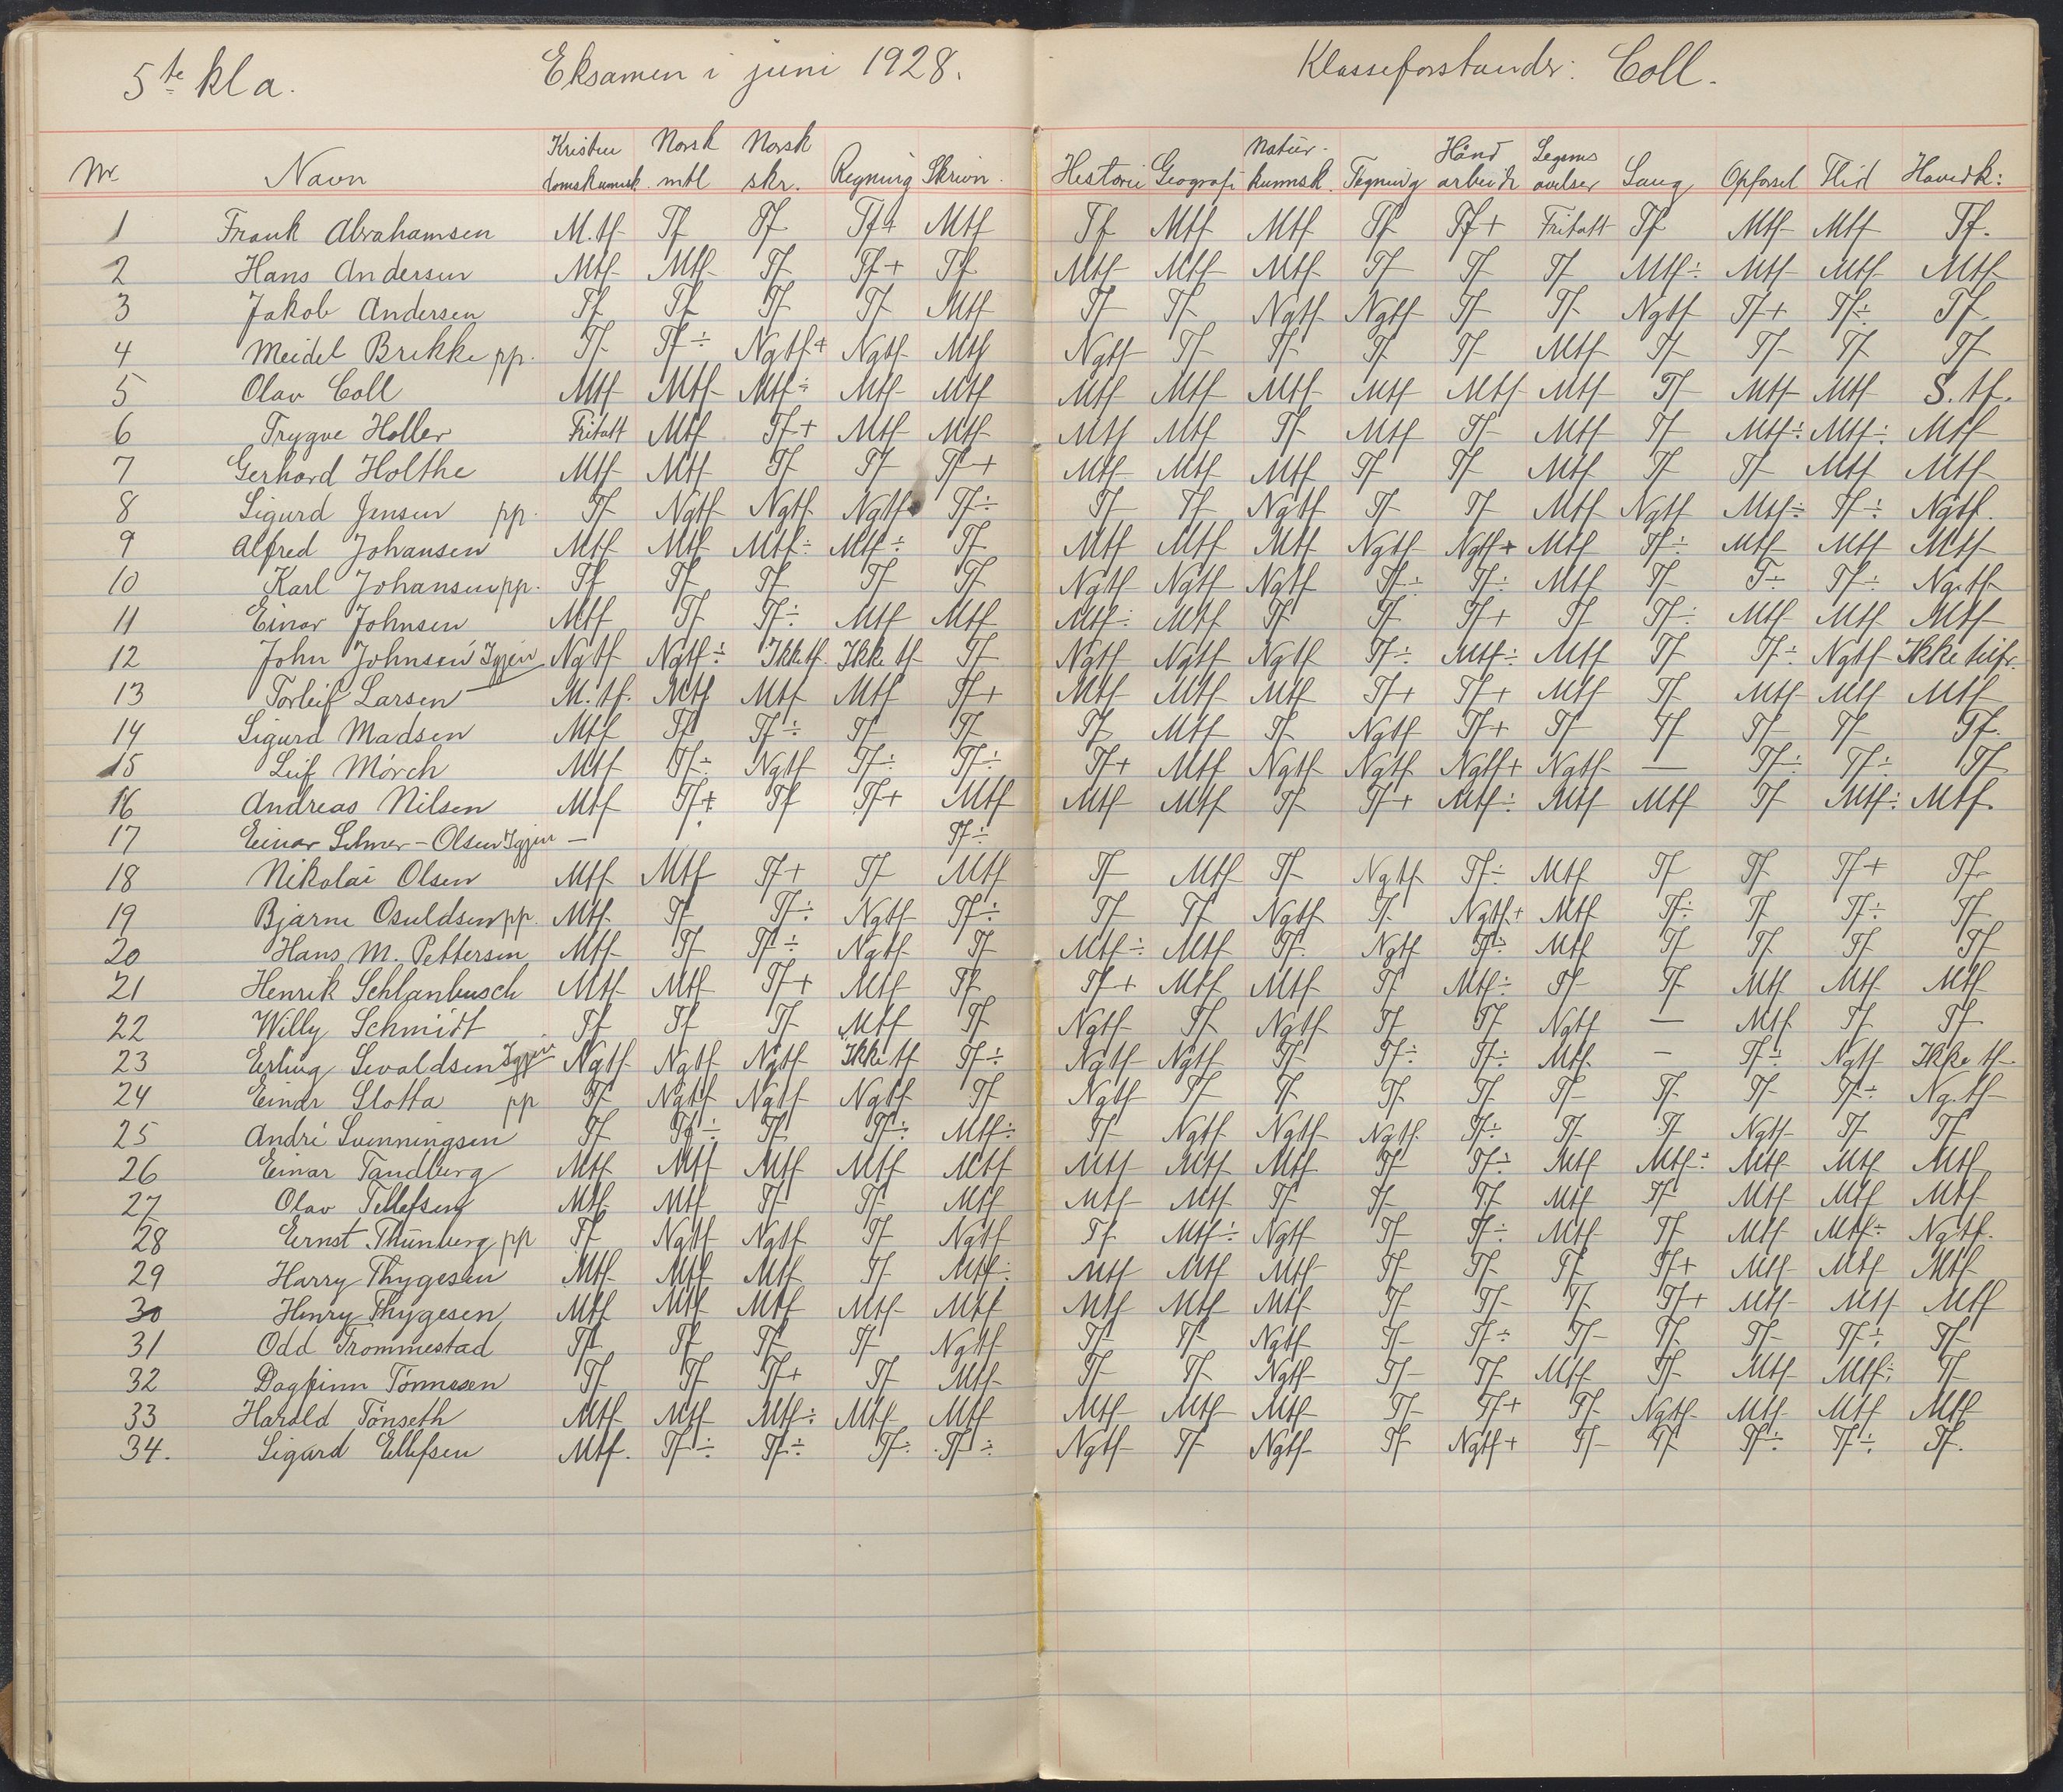 5te kl a. Eksamen i juni 1928. Klasseforstander: Coll.
Nr. Navn Kristendomskunnsk. Norsk mtl Norsk skr. Regning Skrivn. Historie Geografi Naturkunnsk. Tegning Håndarbeide Legemsøvelser Sang Opførsel Flid Hovedk:
1 Frank Abrahamsen M.tf Tf Tf Tf+ Mtf Tf Mtf Mtf Tf Tf+ Fritatt Tf Mtf Mtf Tf.
2 Hans Andersen Mtf Mtf Tf Tf+ Tf Mtf Mtf Mtf Tf Tf Tf Mtf÷ Mtf Mtf Mtf
3 Jakob Andersen Tf Tf Tf Tf Mtf Tf Tf Ngtf Ngtf Tf Tf Ngtf Tf+ Tf÷ Tf
4 Meidel Brekke pp. Tf Tf÷ Ngtf+ Ngtf Mtf Ngtf Tf Tf Tf Tf Mtf Tf Tf Tf Tf
5 Olav Coll Mtf Mtf Mtf÷ Mtf Mtf Mtf Mtf Mtf Mtf Mtf Mtf Tf Mtf Mtf S.tf.
6 Trygve Holler Fritatt Mtf Tf+ Mtf Mtf Mtf Mtf Tf Mtf Tf Mtf Tf Mtf÷ Mtf÷ Mtf
7 Gerhard Holthe Mtf Mtf Tf Tf Tf+ Mtf Mtf Mtf Tf Tf Mtf Tf Tf Mtf Mtf
8 Sigurd Jensen pp. Tf Ngtf Ngtf Ngtf Tf÷ Tf Tf Ngtf Tf Tf Mtf Ngtf Mtf÷ Tf÷ Ngtf.
9 Alfred Johansen Mtf Mtf Mtf÷ Mtf÷ Tf Mtf Mtf Mtf Ngtf Ngtf+ Mtf Tf÷ Mtf Mtf Mtf
10 Karl Johansen pp. Tf Tf Tf Tf Tf Ngtf Ngtf Ngtf Tf÷ Tf÷ Mtf Tf T÷ Tf÷ Ng.tf
11 Einar Johnsen Mtf Tf Tf÷ Mtf Mtf Mtf÷ Mtf Tf Tf Tf+ Tf Tf÷ Mtf Mtf Mtf
12 John Johnsen Igjen Ngtf Ngtf÷ Ikke tf. Ikke tf Tf Ngtf Ngtf Ngtf Tf÷ Mtf÷ Mtf Tf Tf÷ Ngtf Ikke tilfr.
13 Torleif Larsen M.tf. Mtf Mtf Mtf Tf+ Mtf Mtf Mtf Tf+ Tf+ Mtf Tf Mtf Mtf Mtf
14 Sigurd Madsen Mtf Tf Tf÷ Tf Tf Tf Mtf Tf Ngtf Tf+ Tf Tf Tf Tf Tf.
15 Leif Mørch Mtf Tf÷ Ngtf Tf÷ Tf÷ Tf+ Mtf Ngtf Ngtf Ngtf+ Ngtf — Tf÷ Tf÷ Tf
16 Andreas Nilsen Mtf Tf+ Tf Tf+ Mtf Mtf Mtf Tf Tf+ Mtf÷ Mtf Mtf Tf Mtf÷ Mtf.
17 Einar Selmer-Olsen Igjen — Tf÷
18 Nikolai Olsen Mtf Mtf Tf+ Tf Mtf Tf Mtf Tf Ngtf Tf÷ Mtf Tf Tf Tf+ Tf
19 Bjarne Osuldsen pp. Mtf Tf Tf÷ Ngtf Tf÷ Tf Tf Ngtf Tf Ngtf+ Mtf Tf÷ Tf Tf÷ Tf
20 Hans M. Pettersen Mtf Tf Tf÷ Ngtf Tf Mtf÷ Mtf Tf Ngtf Tf÷ Mtf Tf Tf Tf Tf
21 Henrik Schlanbusch Mtf Mtf Tf+ Mtf Tf Tf+ Mtf Mtf Tf Mtf÷ Tf Tf Mtf Mtf Mtf
22 Willy Schmidt Tf Tf Tf Mtf Tf Ngtf Tf Ngtf Tf Tf Ngtf — Mtf Tf Tf
23 Erling Sivaldsen Igjen Ngtf Ngtf Ngtf Ikke tf Tf÷ Ngtf Ngtf Tf Tf÷ Tf÷ Mtf — Tf÷ Ngtf Ikke tf
24 Einar Slotta pp Tf Ngtf Ngtf Ngtf Tf Ngtf Tf Tf Tf Tf Tf Tf Tf Tf÷ Ng.tf
25 André Svenningsen Tf Tf÷ Tf Tf÷ Mtf÷ Tf Ngtf Ngtf Ngtf Tf÷ Tf Tf Ngtf Tf Tf
26 Einar Tandberg Mtf Mtf Mtf Mtf Mtf Mtf Mtf Mtf Tf Tf÷ Mtf Mtf÷ Mtf Mtf Mtf
27 Olav Tellefsen Mtf Mtf Tf Tf Mtf Mtf Mtf Tf Tf Tf Mtf Tf Mtf Mtf Mtf
28 Ernst Thünberg pp Tf Ngtf Ngtf Tf Ngtf Tf Mtf÷ Ngtf Tf Tf÷ Mtf Tf Mtf Mtf÷ Ngtf.
29 Harry Thygesen Mtf Mtf Mtf Tf Mtf÷ Mtf Mtf Mtf Tf Tf Tf Tf+ Mtf Mtf Mtf
30 Henry Thygesen Mtf Mtf Mtf Mtf Mtf Mtf Mtf Mtf Tf Tf Tf Tf+ Mtf Mtf Mtf
31 Odd Trommestad Tf Tf Tf Tf Ngtf Tf Tf Ngtf Tf Tf÷ Tf Tf Tf Tf÷ Tf
32 Dagfinn Tønnesen Tf Tf Tf+ Tf Mtf Tf Tf Ngtf Tf Tf Mtf Tf Mtf Mtf÷ Tf
33 Harald Tønseth Mtf Mtf Mtf÷ Mtf Mtf Mtf Mtf Mtf Tf Tf+ Tf Ngtf Mtf Mtf Mtf
34. Sigurd Ellefsen Mtf. Tf÷ Tf÷ Tf÷ Tf÷ Ngtf Tf Ngtf Tf Ngtf+ Tf Tf Tf÷ Tf÷ Tf.